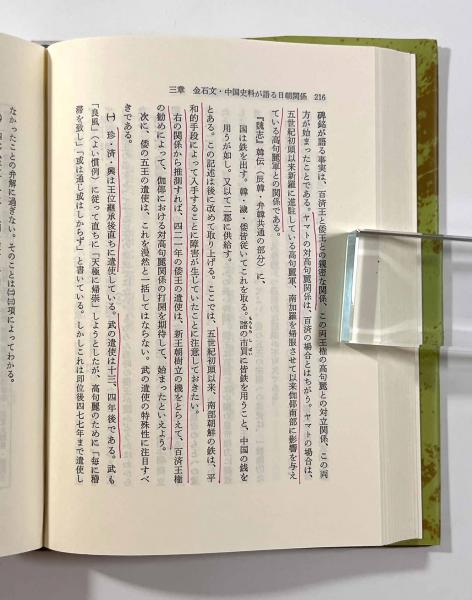 三章 金石文・中国史料が語る日朝関係 216
碑銘が語る事実は、百済王と倭王との親密な関係、この両王権の高句麗との対立関係、この両
方が始まったことである。ヤマトの対高句麗関係は、百済の場合とはちがう。ヤマトの場合は、
五世紀初頭以来新羅に進駐している高句麗軍、南加羅を帰服させて以来伽倻南部に影響を与え
ている高句麗軍との関係である。
『魏志』韓伝(辰韓・弁韓共通の部分)に、
国は鉄を出す。韓・濊・倭皆従いてこれを取る。諸の市買に皆鉄を用うこと、中国の銭を
用うが如し。又以て二郡に供給す。
とある。この記述は後に改めて取り上げる。ここでは、五世紀初頭以来、南部朝鮮の鉄は、平
和的手段によって入手することに障害が生じていたことに注意しておきたい。
右の関係から推測すれば、四二一年の倭王の遣使は、新王朝樹立の機をとらえて、百済王権
の勧めによって、伽倻における対高句麗関係の打開を期待して、始まったといえよう。
次に、倭の五王の遣使は、これを漫然と一括してはならない。武の遣使の特殊性に注目すべ
きである。
(一) 珍・済・興は王位継承後直ちに遣使している。武の遣使は十三、四年後である。武も
「良風」(よい慣例)に従って直ちに「天極に帰崇」しようとしたが、高句麗のために「毎に稽
滞を致し」「或は通じ或はしからず」と書いている。しかしこれは即位後四七七年まで遣使し
なかったことの弁解に過ぎない。そのことは(二)(三)項によってわかる。